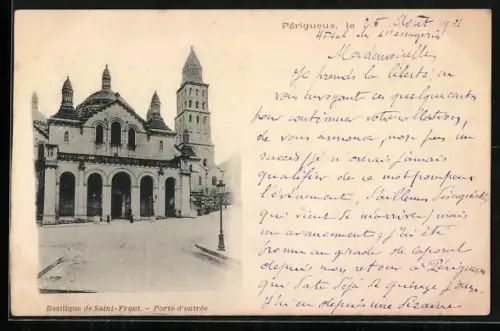 Périgueux, le 25 Août 19
Hôtel des Messageries
Mademoiselle,
Je prends la liberté, en
vous envoyant ces quelques cartes
pour continuer votre collection,
de vous annoncer, non pas un
succès (je n'oserai jamais
qualifier de ce mot pompeux
l'événement, d'ailleurs
qui vient de m'arriver) mais
un avancement; j'ai été
promu au grade de caporal
depuis mon retour à Périgueux
qui date déjà de quinze jours.
J'ai eu depuis une dizaine
Basilique de Saint-Front. - Porte d'entrée